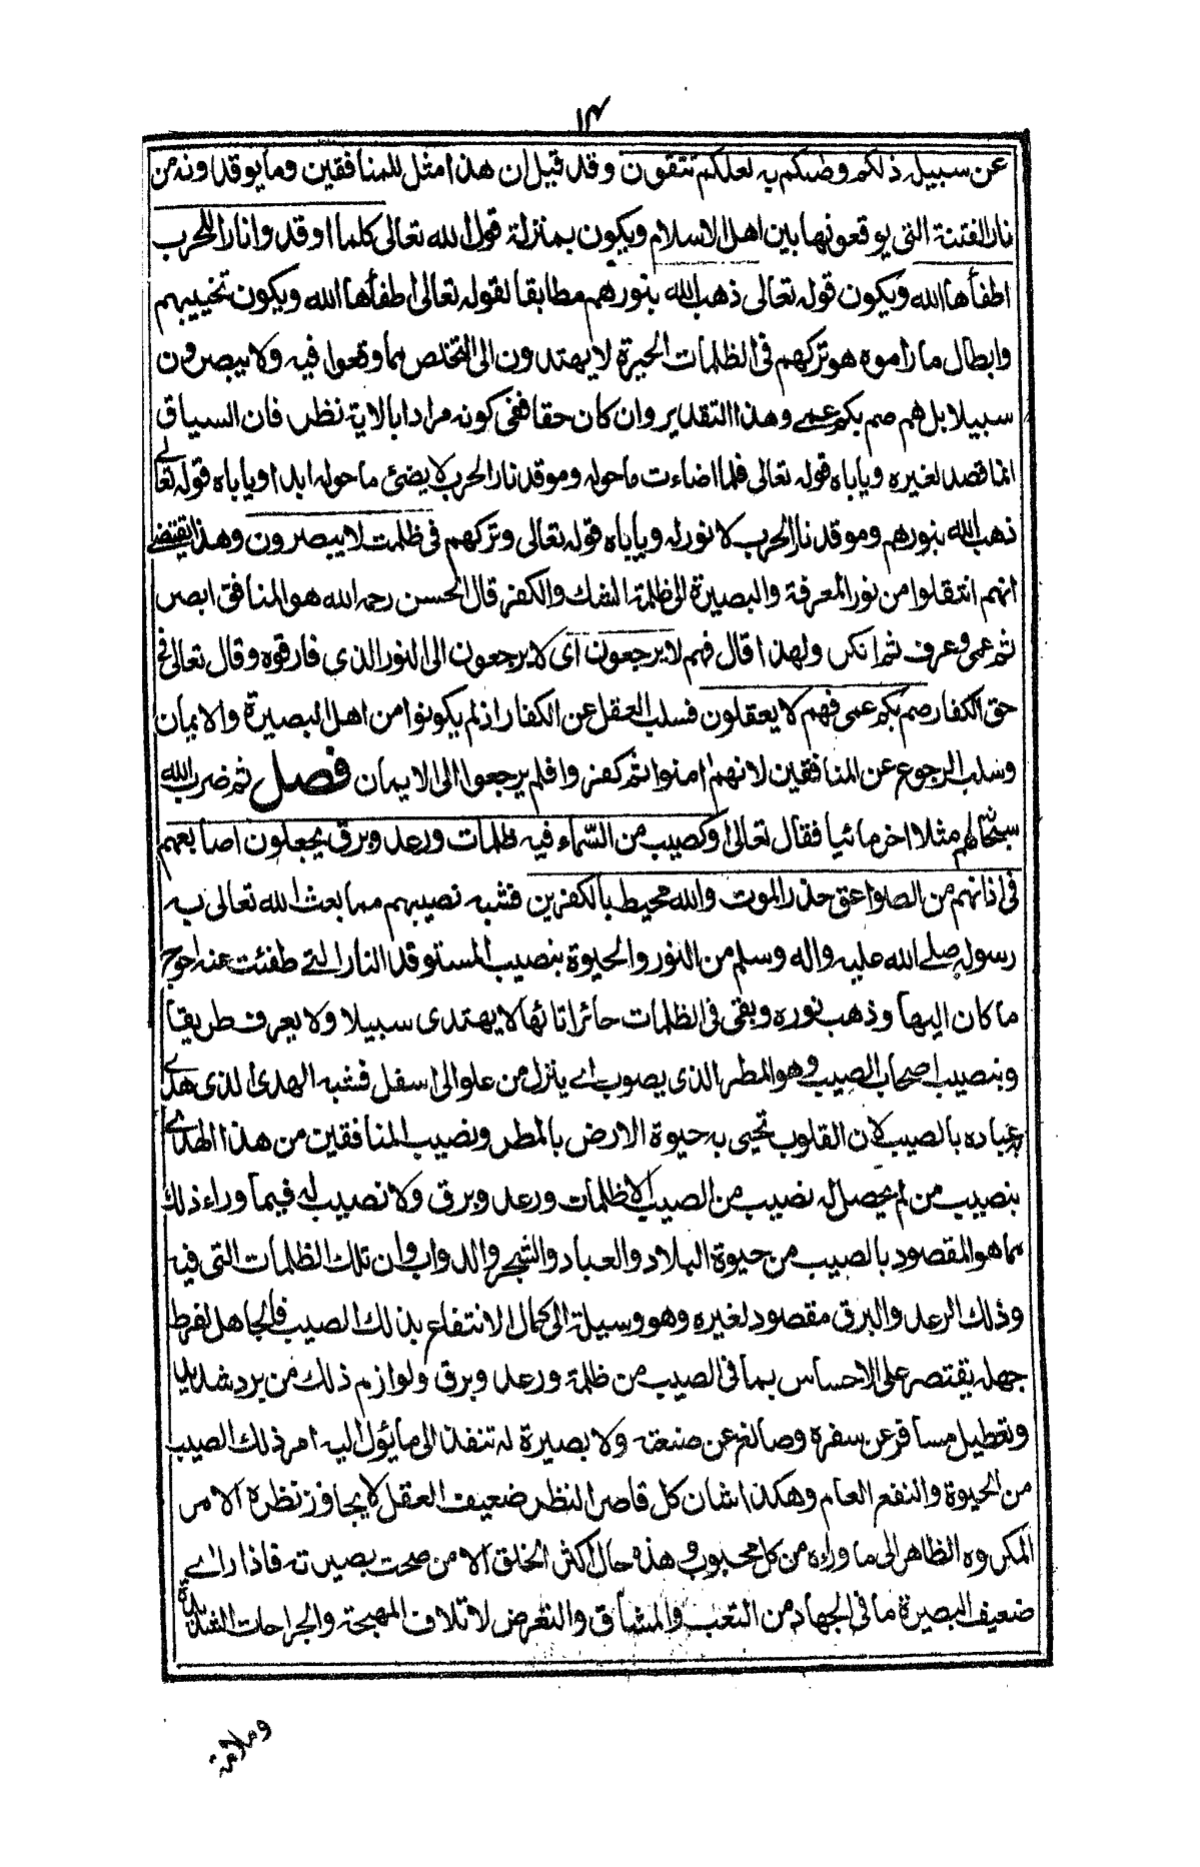 ١٤
عن سبيله ذلكم وصكم به لعلكم تتقون وقد قيل ان هذا مثل للمنافقين وما يوقدونه من
نار الفتنة التى يوقعونها بين اهل الاسلام ويكون بمنزلة قول الله تعالى كلما اوقدوا نارا للحرب
اطفأها الله ويكون قوله تعالى ذهب الله بنورهم مطابقا لقوله تعالى اطفأها الله ويكون تخييبهم
وابطال ما راموه هو تركهم فى الظلمات الحيرة لا يهتدون الى التخلص مما وقعوا فيه ولا يبصرون
سبيلا بل هم صم بكم عمى وهذا التقدير وان كان حقا ففى كونه مرادا بالاية نظر فان السياق
انما قصد لغيره وياباه قوله تعالى فلما اضاءت ما حوله وموقد نار الحرب لا يضئ ما حوله ابدا وياباه قوله تعالى
ذهب الله بنورهم وموقد نار الحرب لا نور له وياباه قوله تعالى وتركهم فى ظلمت لا يبصرون وهذا يقتضى
انهم انتقلوا من نور المعرفة والبصيرة الى ظلمة الشك والكفر قال الحسن رحمه الله هو المنافق ابصر
ثم عمى وعرف ثم انكر ولهذا قال فهم لا يرجعون اى لا يرجعون الى النور الذى فارقوه وقال تعالى فى
حق الكفار صم بكم عمى فهم لا يعقلون فسلب العقل عن الكفار اذ لم يكونوا من اهل البصيرة والايمان
وسلب الرجوع عن المنافقين لانهم امنوا ثم كفروا فلم يرجعوا الى الايمان فصل ثم ضرب الله
سبحانه لهم مثلا اخر مائيا فقال تعالى او كصيب من السماء فيه ظلمات ورعد وبرق يجعلون اصابعهم
فى اذانهم من الصواعق حذر الموت والله محيط بالكفرين فشبه نصيبهم مما بعث الله تعالى به
رسوله صلے الله عليه واله وسلم من النور والحيوة بنصيب المستوقد النار التے طفئت عنه احوج
ما كان اليها وذهب نوره وبقى فى الظلمات حائرا تائها لا يهتدى سبيلا ولا يعرف طريقا
وبنصيب اصحاب الصيب وهو المطر الذى يصوب اے ينزل من علو الى اسفل فشبه الهدى الذى هدے
به عباده بالصيب لان القلوب تحيى به حيوة الارض بالمطر ونصيب المنافقين من هذا الهدے
بنصيب من لم يحصل له نصيب من الصيب الا ظلمات ورعد وبرق ولا نصيب له فيما وراء ذلك
مما هو المقصود بالصيب من حيوة البلاد والعباد والشجر والدواب وان تلك الظلمات التى فيه
وذلك الرعد والبرق مقصود لغيره وهو وسيلة الى كمال الانتفاع بذلك الصيب فالجاهل لفرط
جهله يقتصر على الاحساس بما فى الصيب من ظلمة ورعد وبرق ولوازم ذلك من برد شديد
وتعطيل مسافر عن سفره وصانع عن صنعته ولا بصيرة له تنفذ الى ما يؤل اليه امر ذلك الصيب
من الحيوة والنفع العام وهكذا شان كل قاصر النظر ضعيف العقل لا يجاوز نظره الامر
المكروه الظاهر الى ما وراءه من كل محبوب وهذه حال اكثر الخلق الا من صحت بصيرته فاذا راے
ضعيف البصيرة ما فى الجهاد من التعب والمشاق والتعرض لاتلاف المهجة والجراحات الشديدة
وملامة